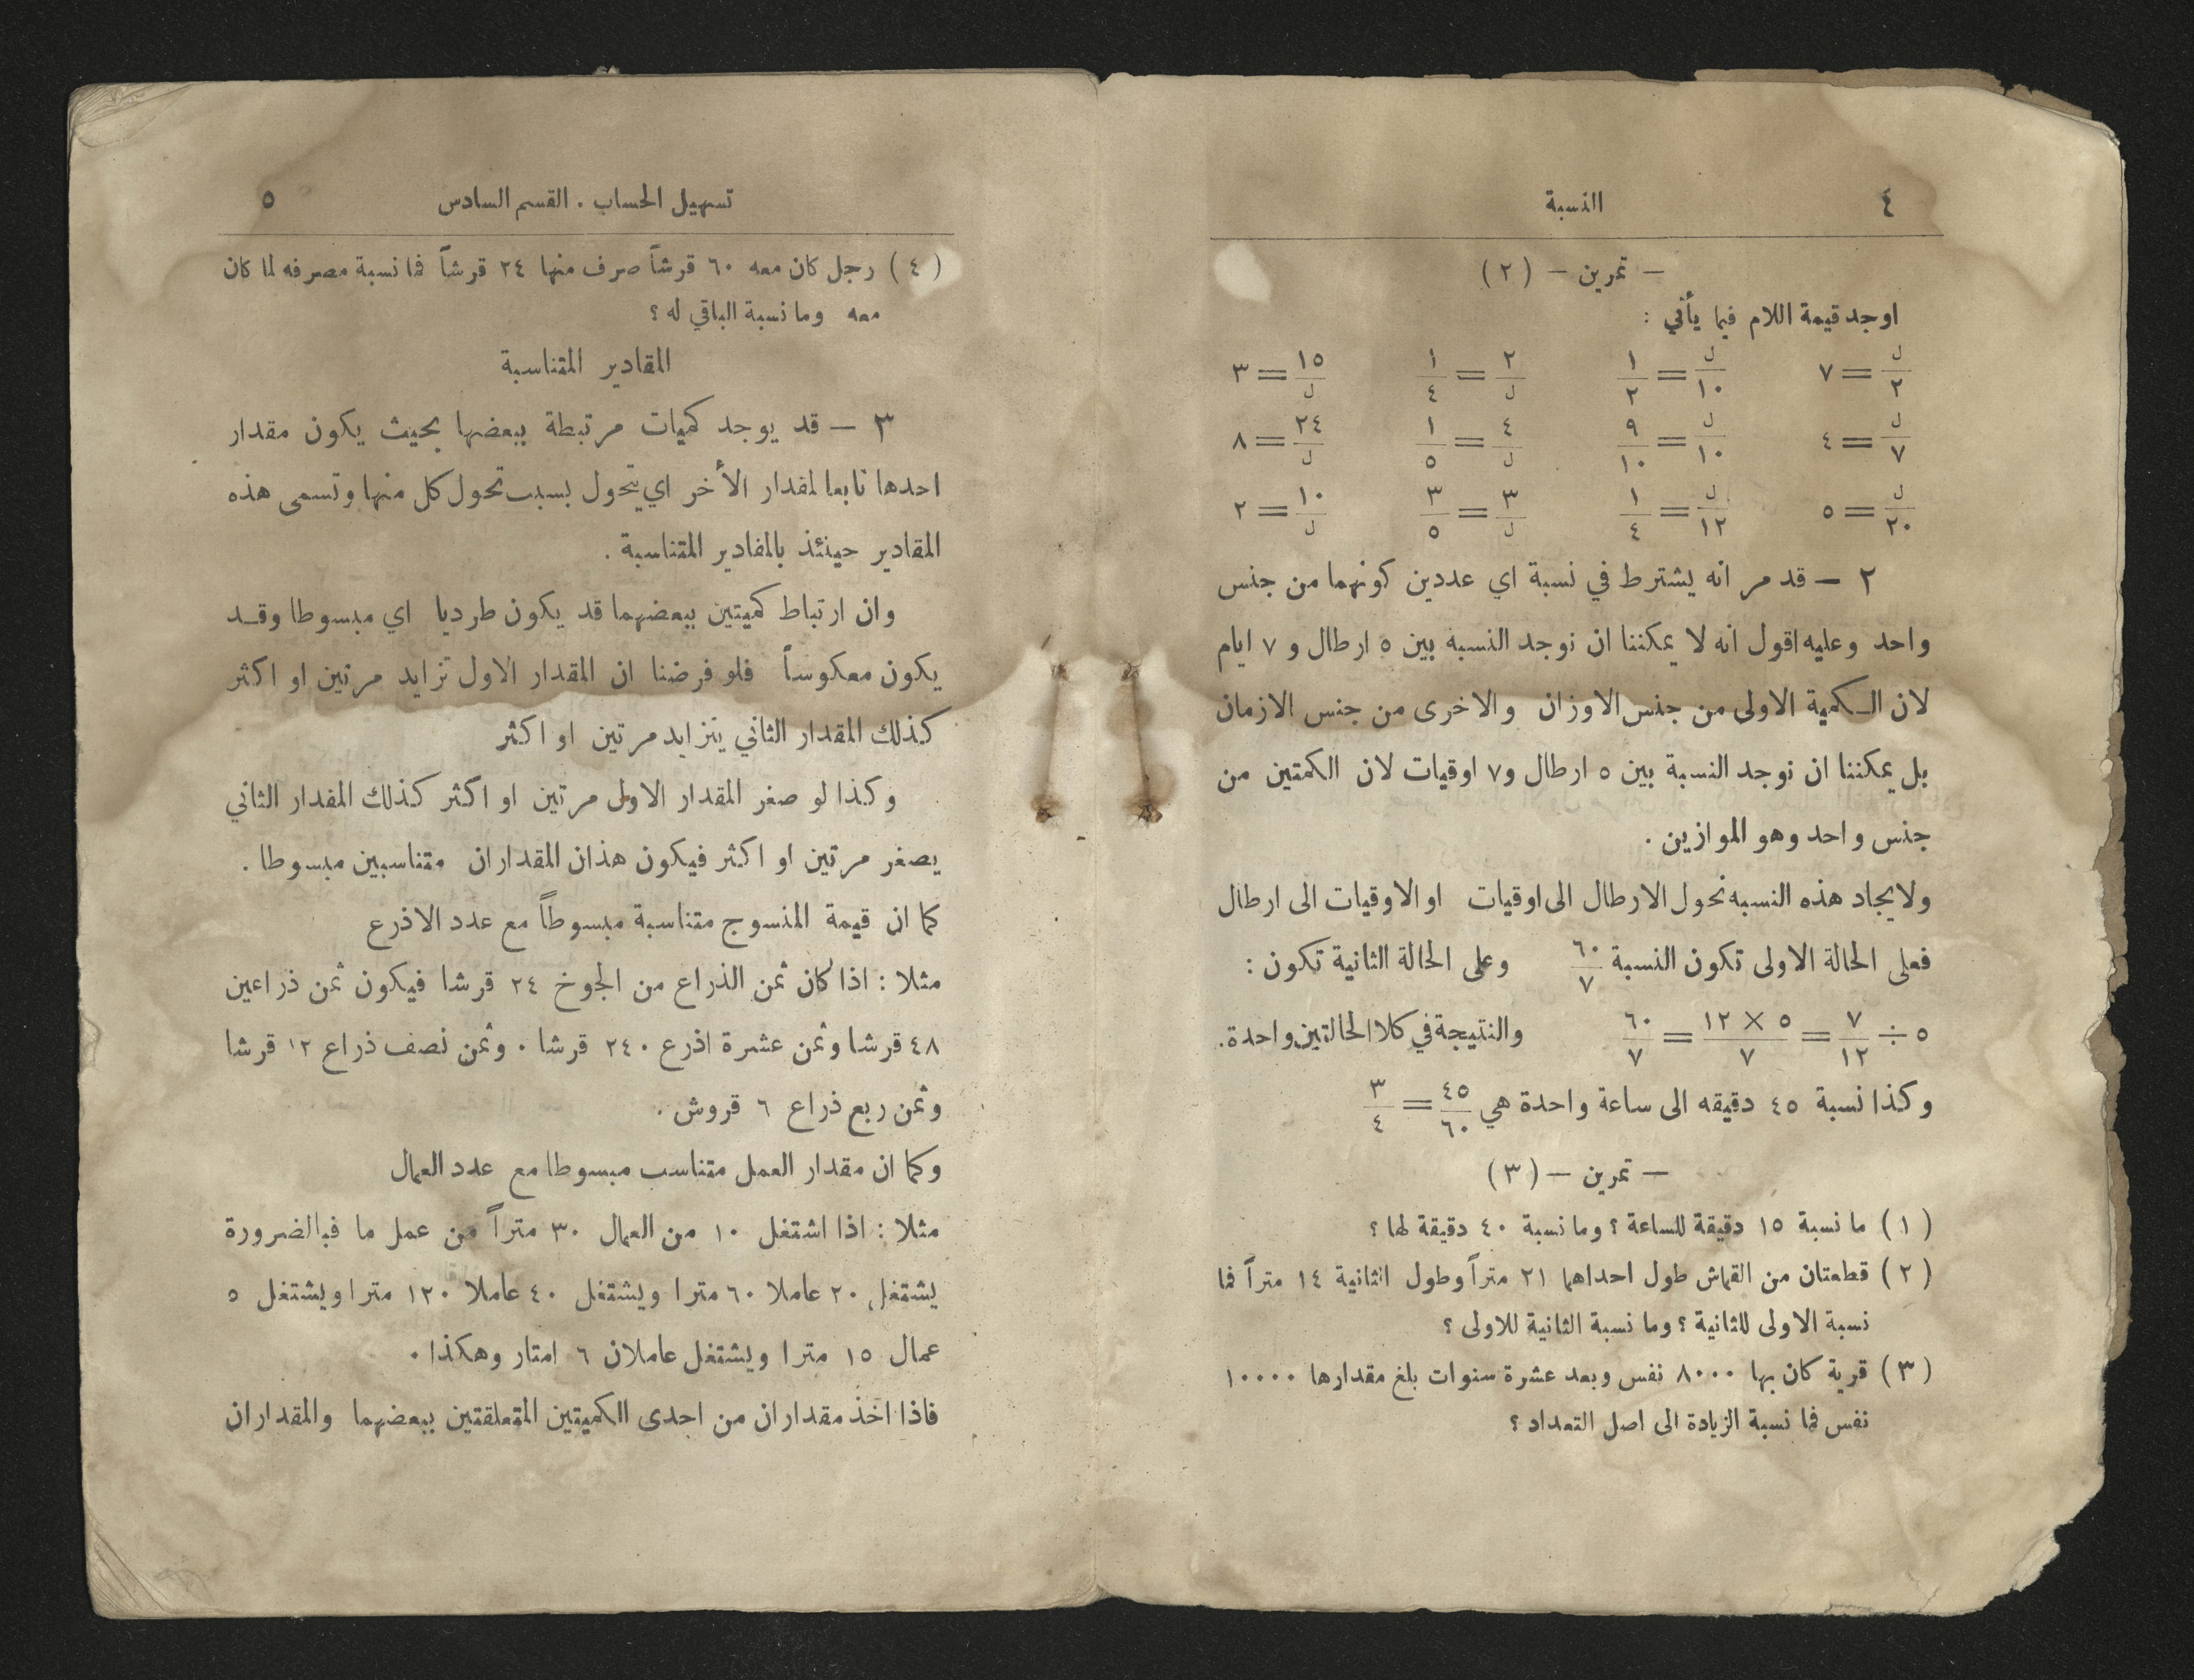 ٤ النسبة
— تمرين — ( ٢ )
اوجد قيمة اللام فيما يأتي :
ل/٢ = ٧ ل/١٠ = ١/٢ ٢/ل = ١/٤ ١٥/ل = ٣
ل/٧ = ٤ ل/١٠ = ٩/١٠ ٤/ل = ١/٥ ٢٤/ل = ٨
ل/٢٠ = ٥ ل/١٢ = ١/٤ ٣/ل = ٣/٥ ١٠/ل = ٢
٢ — قد مر انه يشترط في نسبة اي عددين كونهما من جنس
واحد وعليه اقول انه لا يمكننا ان نوجد النسبه بين ٥ ارطال و ٧ ايام
لان الـكمية الاولى من جنس الاوزان والاخرى من جنس الازمان
بل يمكننا ان نوجد النسبة بين ٥ ارطال و٧ اوقيات لان الكمتين من
جنس واحد وهو الموازين .
ولايجاد هذه النسبه نحول الارطال الى اوقيات او الاوقيات الى ارطال
فعلى الحالة الاولى تكون النسبة ٦٠/٧ وعلى الحالة الثانية تكون :
٥ ÷ ٧/١٢ = ٥ × ١٢/٧ = ٦٠/٧ والنتيجة في كلا الحالتين واحدة.
وكذا نسبة ٤٥ دقيقه الى ساعة واحدة هي ٤٥/٦٠ = ٣/٤
— تمرين — ( ٣ )
( ١ ) ما نسبة ١٥ دقيقة للساعة ؟ وما نسبة ٤٠ دقيقة لها ؟
( ٢ ) قطعتان من القماش طول احداهما ٢١ متراً وطول الثانية ١٤ متراً فما
نسبة الاولى للثانية ؟ وما نسبة الثانية للاولى ؟
( ٣ ) قرية كان بها ٨٠٠٠ نفس وبعد عشرة سنوات بلغ مقدارها ١٠٠٠٠
نفس فما نسبة الزيادة الى اصل التعداد ؟
تسهيل الحساب . القسم السادس ٥
( ٤ ) رجل كان معه ٦٠ قرشاً صرف منها ٢٤ قرشاً فما نسبة مصرفه لما كان
معه وما نسبة الباقي له ؟
المقادير المتناسبة
٣ — قد يوجد كميات مرتبطة ببعضها بحيث يكون مقدار
احدها تابعا لمقدار الأخر اي يتحول بسبب تحول كل منها وتسمى هذه
المقادير حينئذ بالمقادير المتناسبة .
وان ارتباط كميتين ببعضهما قد يكون طرديا اي مبسوطا وقـد
يكون معكوساً فلو فرضنا ان المقدار الاول تزايد مرتين او اكثر
كذلك المقدار الثاني يتزايد مرتين او اكثر
وكذا لو صغر المقدار الاول مرتين او اكثر كذلك المقدار الثاني
يصغر مرتين او اكثر فيكون هذان المقداران متناسبين مبسوطا .
كما ان قيمة المنسوج متناسبة مبسوطاً مع عدد الاذرع
مثلا : اذا كان ثمن الذراع من الجوخ ٢٤ قرشا فيكون ثمن ذراعين
٤٨ قرشا وثمن عشرة اذرع ٢٤٠ قرشا . وثمن نصف ذراع ١٢ قرشا
وثمن ربع ذراع ٦ قروش .
وكما ان مقدار العمل متناسب مبسوطا مع عدد العمال
مثلا : اذا اشتغل ١٠ من العمال ٣٠ متراً من عمل ما فبالضرورة
يشتغل ٢٠ عاملا ٦٠ مترا ويشتغل ٤٠ عاملا ١٢٠ مترا ويشتغل ٥
عمال ١٥ مترا ويشتغل عاملان ٦ امتار وهكذا .
فاذا اخذ مقداران من احدى الكميتين المتعلقتين ببعضهما والمقداران